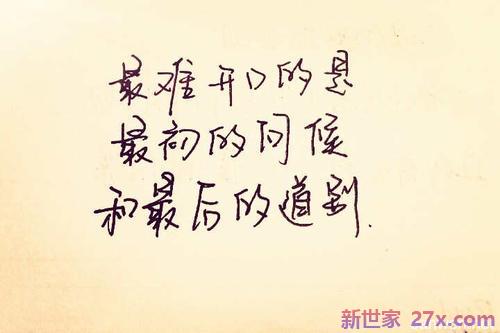 最难开口的是
最初的问候
和最后的道别.
新世家 27x.com